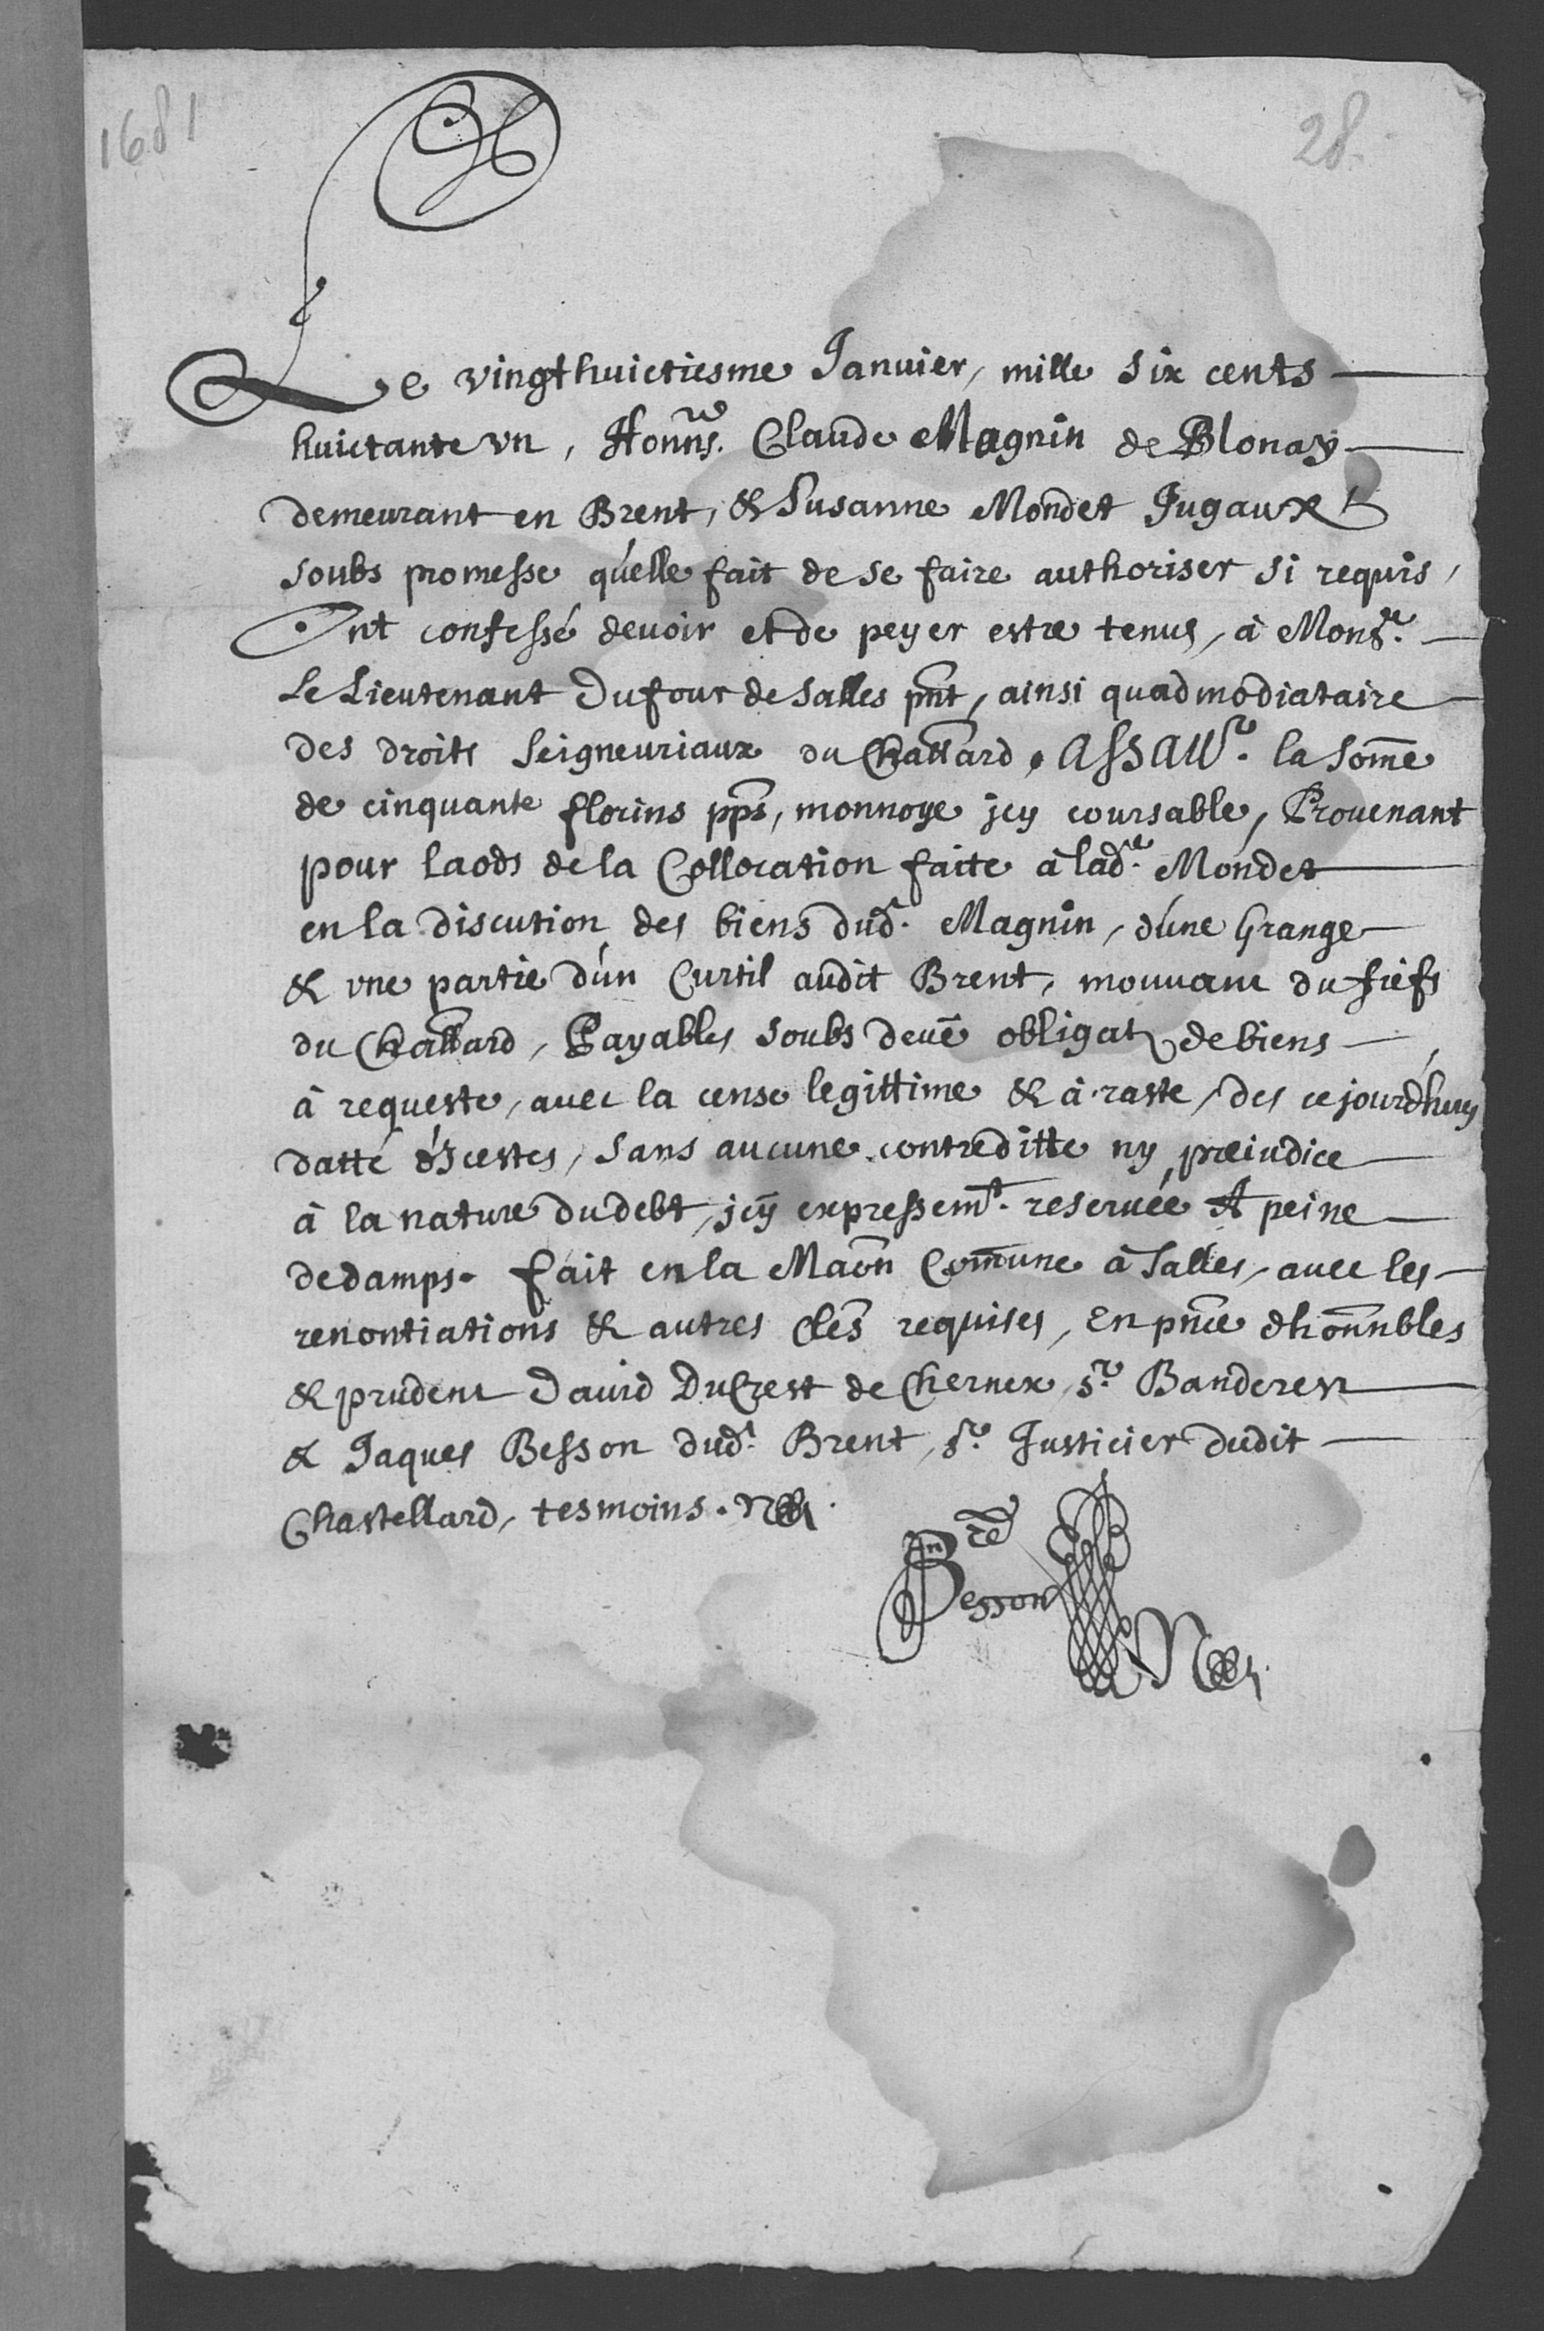 1681
28.
Le vingthuictiesme Januier, mille six cents
huictante vn, Honns. Claude Magnin de Blonay
demeurant en Brent, & Susanne Mondet Jugaux
soubs promesse qu'elle fait de se faire authoriser si requis,
Ont confessé deuoir et de peyer estre tenus, à Monsr.
Le Lieutenant Dufour de Salles pnt, ainsi quadmodiataire
des droits Seigneuriaux du Challard, Assaur. la some
de cinquante florins pps, monnoye jcy coursable, Prouenant
pour laods de la Collocation faite à lade. Mondet
en la discution des biens dud. Magnin, d'une Grange
& vne partie d'un Curtil audit Brent, mouuant du fiefs
du Challard, Payables soubs deue obligat de biens
à requeste, auec la cense legittime & à raste, des ce jourd'huy
datté d'jcestes, sans aucune contreditte ny preiudice
à la nature du debt, jcy expressemt. reseruée A peine
de damps. fait en la Maon Comune à Salles, auec les
renontiations & autres cles requises, En pnce dhonnbles
& prudent Dauid DuCrest de Chernex, sr. Banderet
& Jaques Besson dud. Brent, sr. Justicier dudit
Chastellard, tesmoins.
Besson